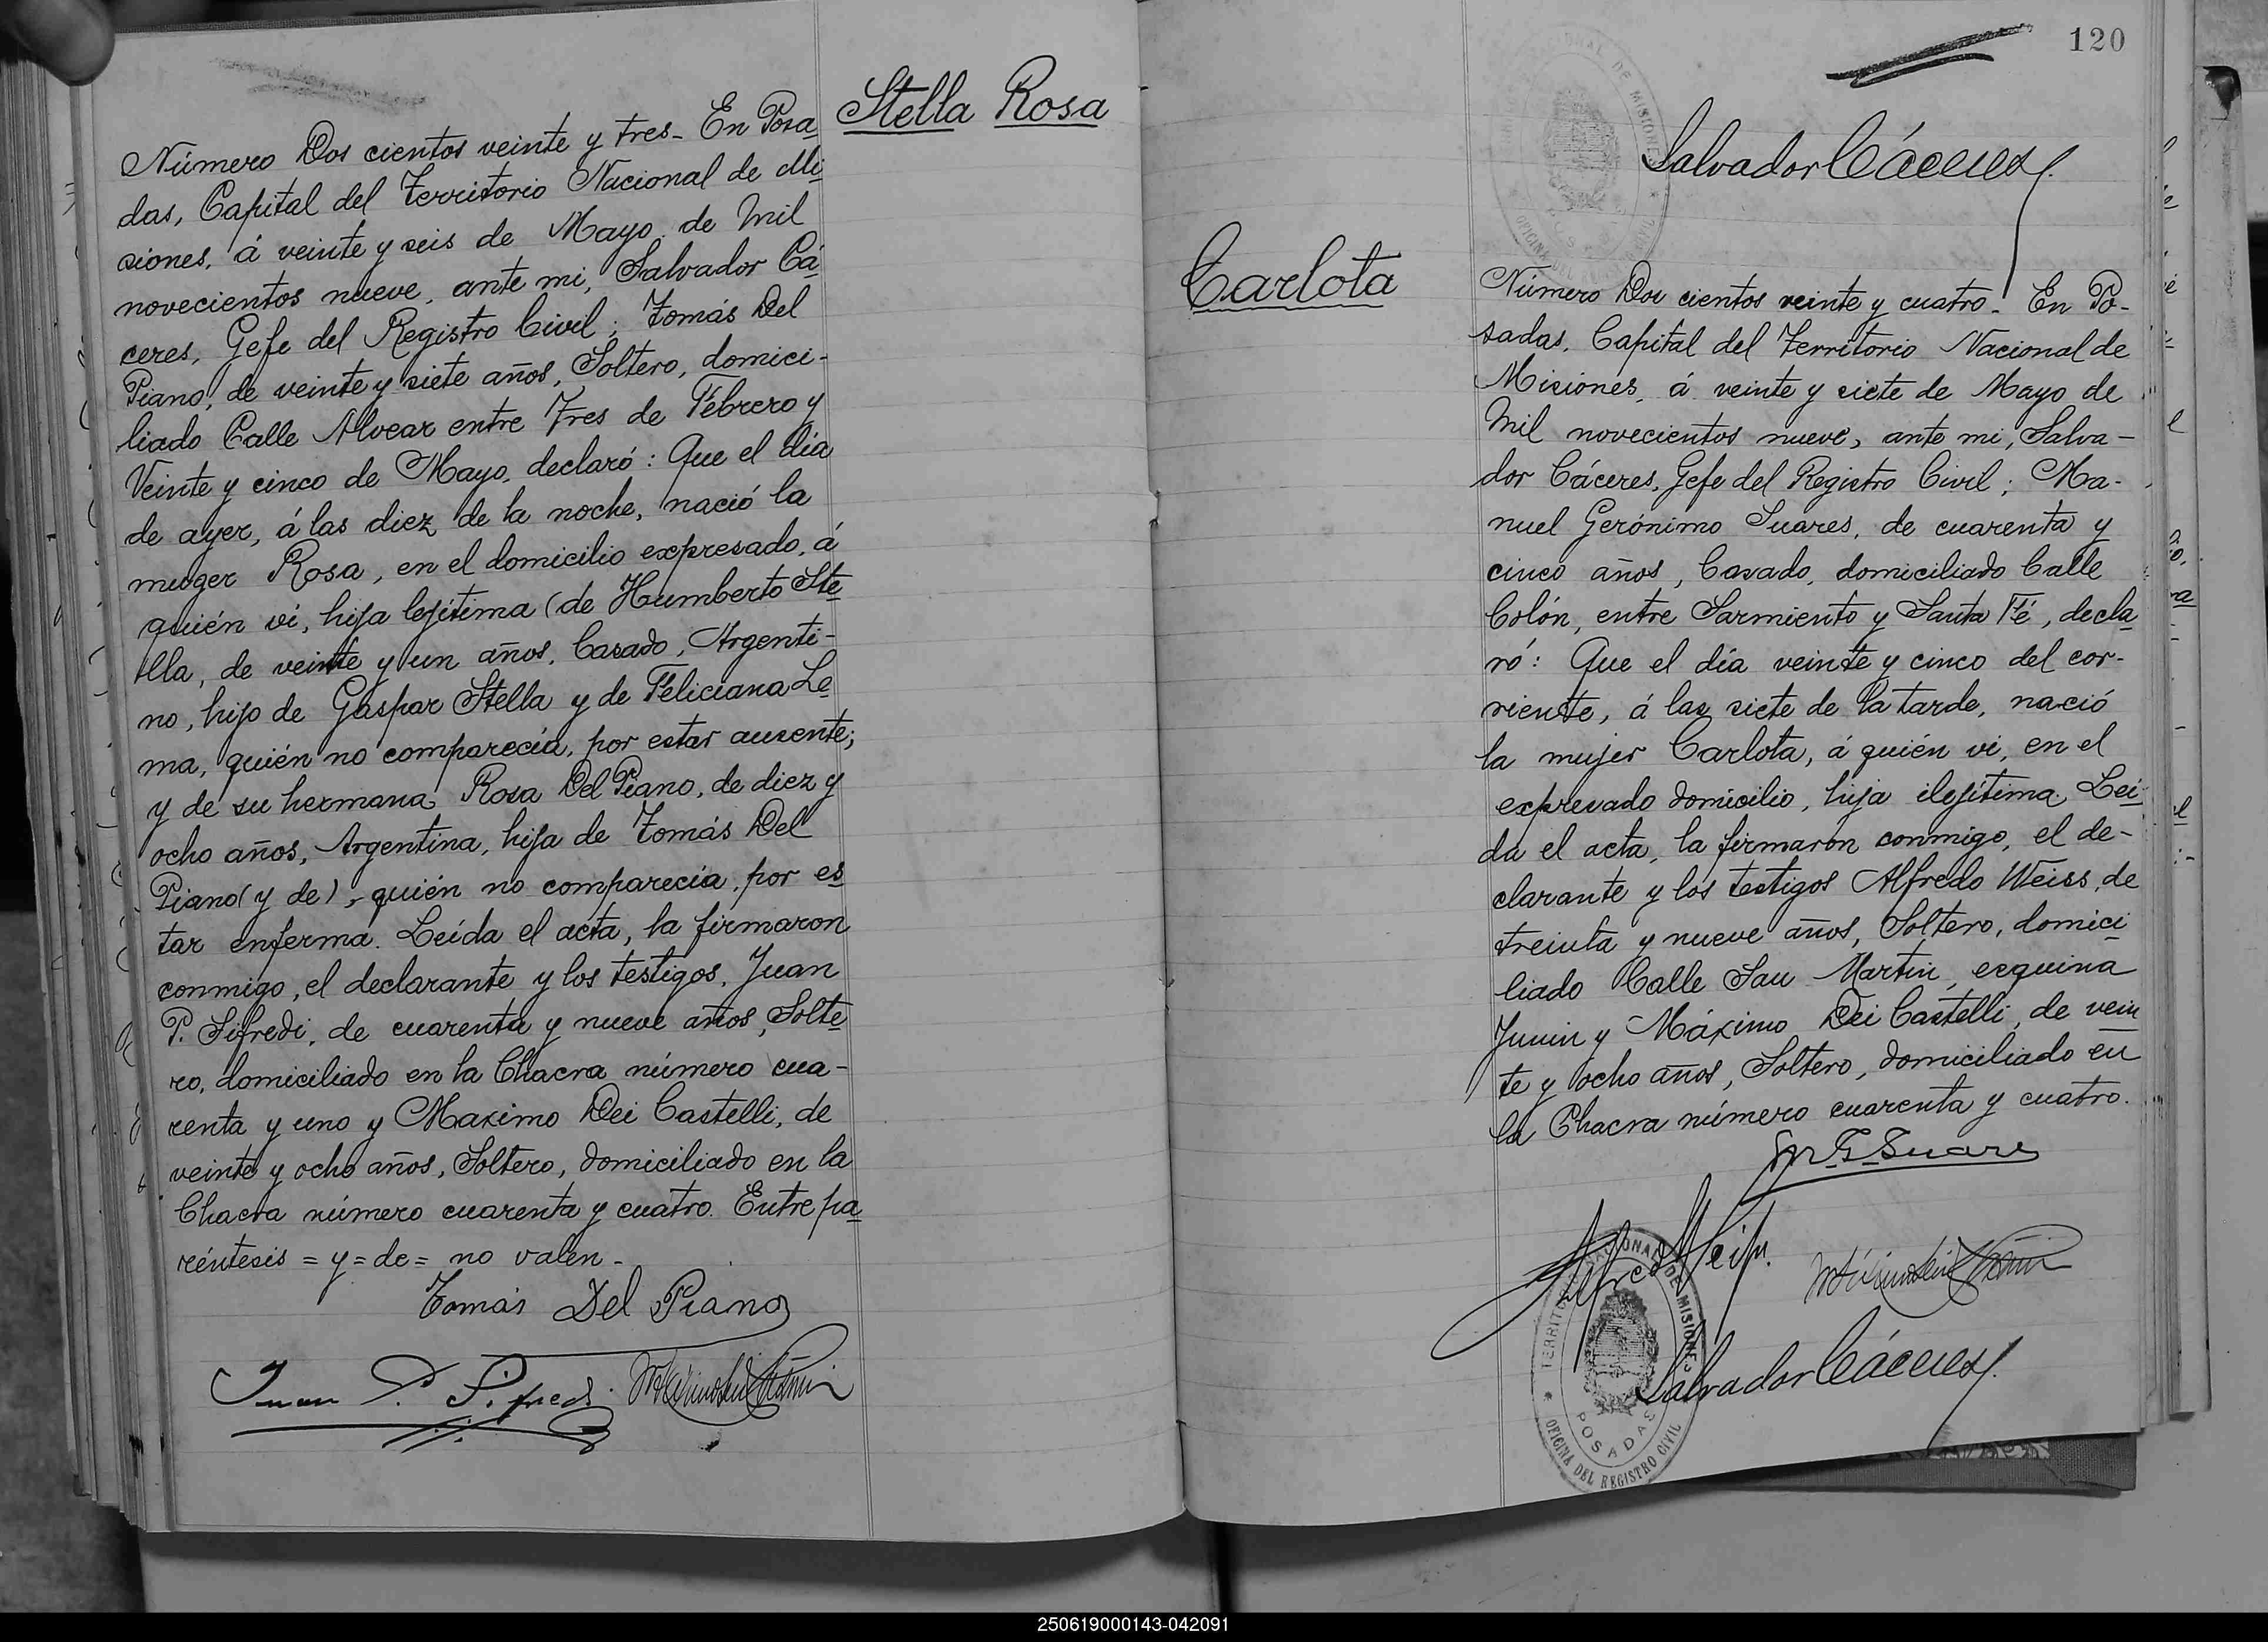 Stella Rosa
Número Dos cientos veinte y tres - En Posa
das, Capital del Territorio Nacional de Mi
siones, á veinte y seis de Mayo de Mil
novecientos nueve, ante mi, Salvador Cá
ceres, Gefe del Registro Civil; Tomás Del
Piano, de veinte y siete años, Soltero, domici-
liado Calle Alvear entre Tres de Febrero y
Veinte y cinco de Mayo, declaró: Que el día
de ayer, á las diez de la noche, nació la
muger Rosa, en el domicilio expresado, á
quién vi, hija lejítima (de Humberto Ste
lla, de veinte y un años, Casado, Argenti-
no, hijo de Gaspar Stella y de Feliciana Le
ma, quién no comparecía, por estar ausente;
y de su hermana Rosa Del Piano, de diez y
ocho años, Argentina, hija de Tomás Del
Piano (y de), quién no comparecía, por es
tar enferma. Leída el acta, la firmaron
conmigo, el declarante y los testigos, Juan
P. Sifredi, de cuarenta y nueve años, Solte
ro, domiciliado en la Chacra número cua-
renta y uno y Maximo Dei Castelli, de
veinte y ocho años, Soltero, domiciliado en la
Chacra número cuarenta y cuatro. Entre pa
réntesis = y = de = no valen -
Tomás Del Piano
Juan P. Sifredi
120
Salvador Cáceres
Carlota
Número Dos cientos veinte y cuatro - En Po-
sadas, Capital del Territorio Nacional de
Misiones, á veinte y siete de Mayo de
Mil novecientos nueve, ante mi, Salva-
dor Cáceres, Gefe del Registro Civil; Ma-
nuel Gerónimo Suares, de cuarenta y
cinco años, Casado, domiciliado Calle
Colón, entre Sarmiento y Santa Fé, decla
ró: Que el día veinte y cinco del cor-
riente, á las siete de la tarde, nació
la mujer Carlota, á quién vi, en el
expresado domicilio, hija ilejítima. Lei
da el acta, la firmaron conmigo, el de-
clarante y los testigos Alfredo Weiss, de
treinta y nueve años, Soltero, domici
liado Calle San Martin, esquina
Junin y Máximo Dei Castelli, de vein
te y ocho años, Soltero, domiciliado en
la Chacra número cuarenta y cuatro.
M. G. Suares
TERRITORIO NACIONAL DE MISIONES
POSADAS
OFICINA DEL REGISTRO CIVIL
Salvador Cáceres
250619000143-042091